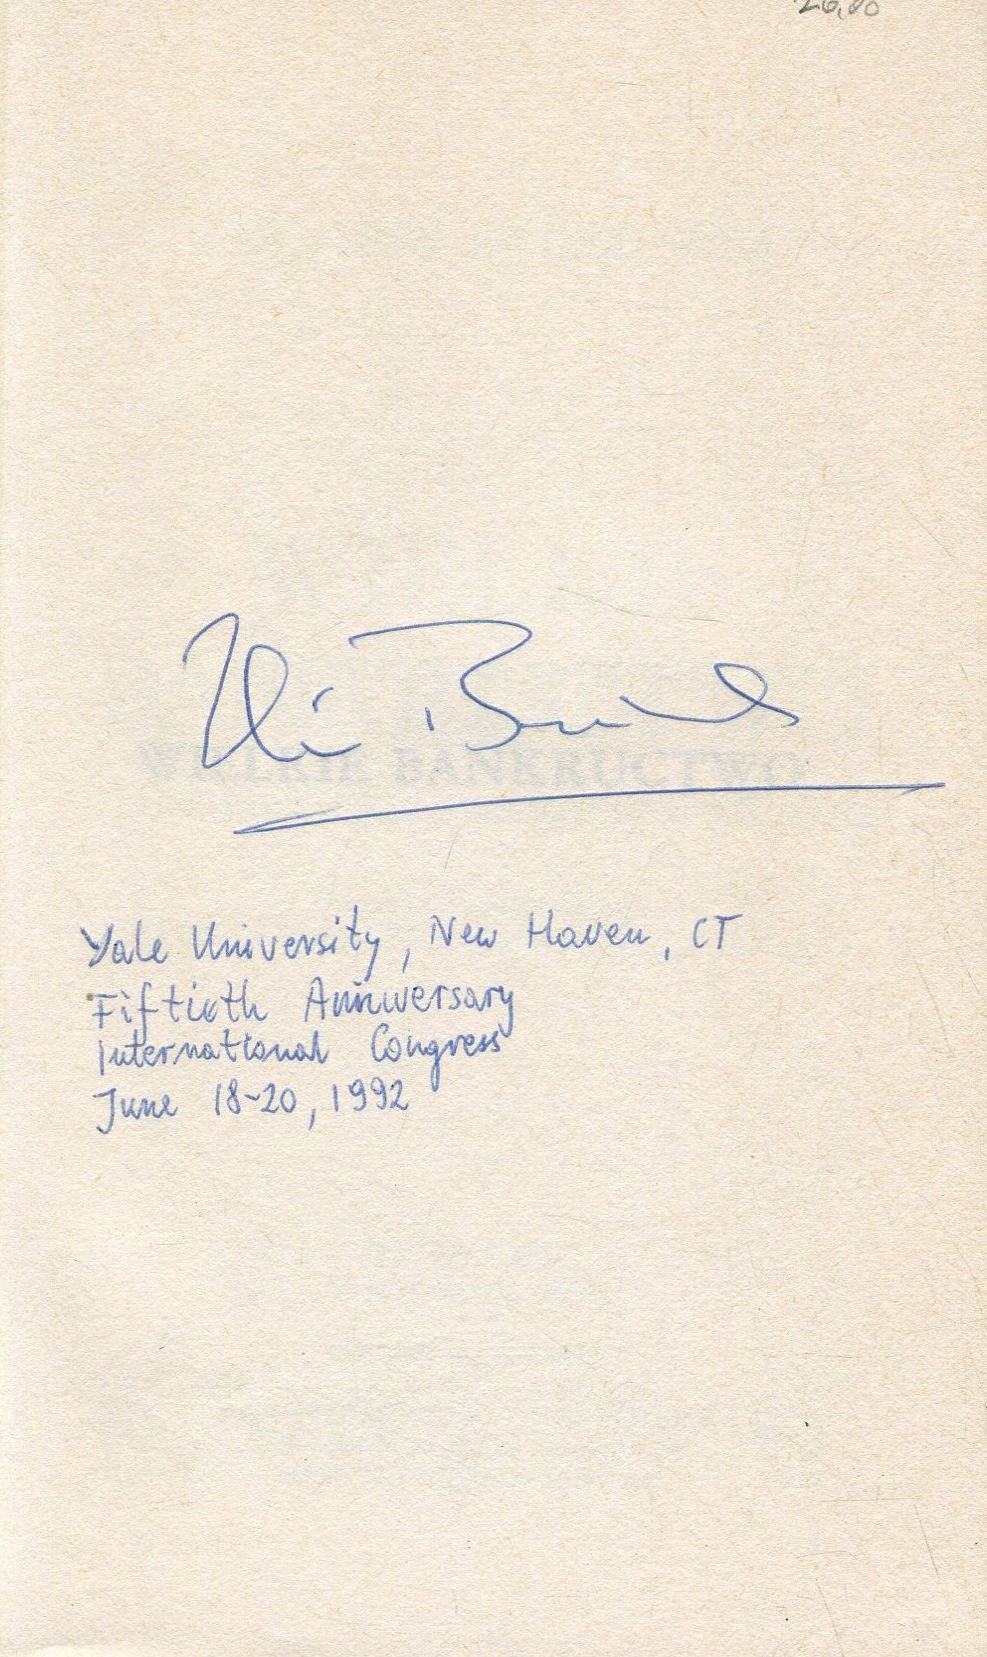 26,80
WIELKIE BANKRUCTWO
Yale University, New Haven, CT
Fiftieth Anniwersary
International Congress
June 18-20, 1992